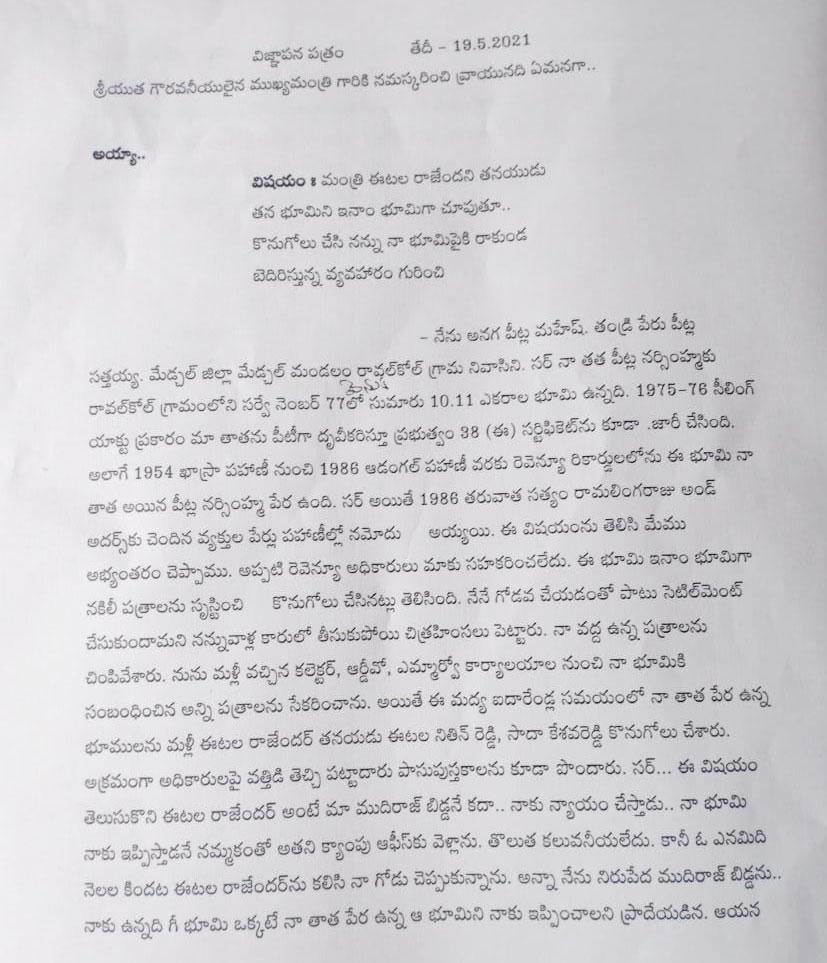 విజ్ఞాపన పత్రం తేదీ - 19.5.2021
శ్రీయుత గౌరవనీయులైన ముఖ్యమంత్రి గారికి నమస్కరించి వ్రాయునది ఏమనగా..
అయ్యా..
విషయం : మంత్రి ఈటల రాజేందని తనయుడు
తన భూమిని ఇనాం భూమిగా చూపుతూ..
కొనుగోలు చేసి నన్ను నా భూమిపైకి రాకుండ
బెదిరిస్తున్న వ్యవహారం గురించి
- నేను అనగ పీట్ల మహేష్. తండ్రి పేరు పీట్ల
సత్తయ్య. మేడ్చల్ జిల్లా మేడ్చల్ మండలం రావల్‌కోల్ గ్రామ నివాసిని. సర్ నా తత పీట్ల నర్సింహ్మకు
రావల్‌కోల్ గ్రామంలోని సర్వే నెంబర్ 77లో సుమారు 10.11 ఎకరాల భూమి ఉన్నది. 1975-76 సీలింగ్
యాక్టు ప్రకారం మా తాతను పీటీగా దృవీకరిస్తూ ప్రభుత్వం 38 (ఈ) సర్టిఫికెట్‌ను కూడా .జారీ చేసింది.
అలాగే 1954 ఖాస్రా పహాణీ నుంచి 1986 ఆడంగల్ పహాణీ వరకు రెవెన్యూ రికార్డులలోను ఈ భూమి నా
తాత అయిన పీట్ల నర్సింహ్మ పేర ఉంది. సర్ అయితే 1986 తరువాత సత్యం రామలింగరాజు అండ్
అదర్స్‌కు చెందిన వ్యక్తుల పేర్లు పహాణీల్లో నమోదు అయ్యయి. ఈ విషయంను తెలిసి మేము
అభ్యంతరం చెప్పాము. అప్పటి రెవెన్యూ అధికారులు మాకు సహకరించలేదు. ఈ భూమి ఇనాం భూమిగా
నకిలీ పత్రాలను సృష్టించి కొనుగోలు చేసినట్లు తెలిసింది. నేనే గోడవ చేయడంతో పాటు సెటిల్‌మెంట్
చేసుకుందామని నన్నువాళ్ల కారులో తీసుకుపోయి చిత్రహింసలు పెట్టారు. నా వద్ద ఉన్న పత్రాలను
చింపివేశారు. నును మళ్లీ వచ్చిన కలెక్టర్, ఆర్డీవో, ఎమ్మార్వో కార్యాలయాల నుంచి నా భూమికి
సంబంధించిన అన్ని పత్రాలను సేకరించాను. అయితే ఈ మధ్య ఐదారేండ్ల సమయంలో నా తాత పేర ఉన్న
భూములను మళ్లీ ఈటల రాజేందర్ తనయడు ఈటల నితిన్ రెడ్డి, సాదా కేశవరెడ్డి కొనుగోలు చేశారు.
అక్రమంగా అధికారులపై వత్తిడి తెచ్చి పట్టాదారు పాసుపుస్తకాలను కూడా పొందారు. సర్... ఈ విషయం
తెలుసుకొని ఈటల రాజేందర్ అంటే మా ముదిరాజ్ బిడ్డనే కదా.. నాకు న్యాయం చేస్తాడు.. నా భూమి
నాకు ఇప్పిస్తాడనే నమ్మకంతో అతని క్యాంపు ఆఫీస్‌కు వెళ్లాను. తొలుత కలువనీయలేదు. కానీ ఓ ఎనమిది
నెలల కిందట ఈటల రాజేందర్‌ను కలిసి నా గోడు చెప్పుకున్నాను. అన్నా నేను నిరుపేద ముదిరాజ్ బిడ్డను..
నాకు ఉన్నది గీ భూమి ఒక్కటే నా తాత పేర ఉన్న ఆ భూమిని నాకు ఇప్పించాలని ప్రాదేయడిన. ఆయన